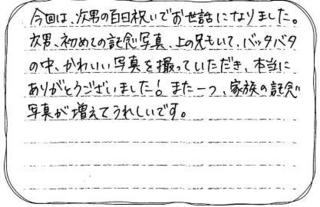 今回は、次男の百日祝いでお世話になりました。
次男、初めての記念写真、上の兄もいて、バッタバタ
の中、かわいい写真を撮っていただき、本当に
ありがとうございました！また一つ、家族の記念
写真が増えてうれしいです。